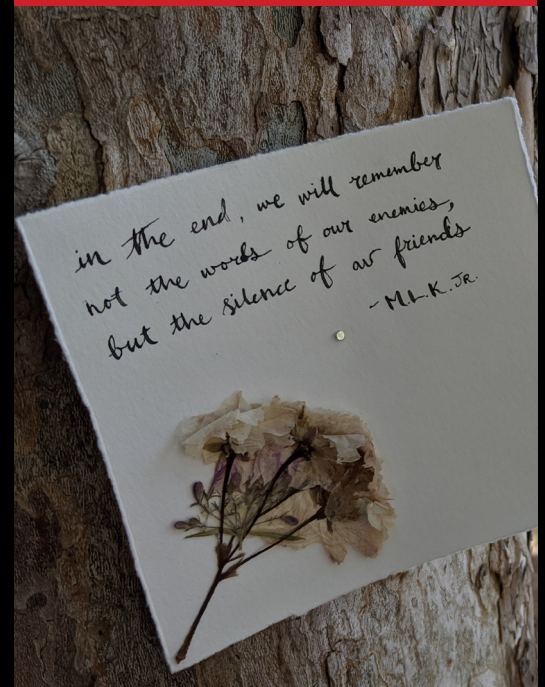 in the end, we will remember
not the words of our enemies,
but the silence of our friends
- M.L.K. JR.